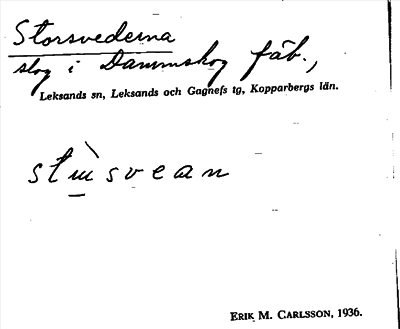 Storsvederna
slog i Dammskog fäb.,
Leksands sn, Leksands och Gagnefs tg, Kopparbergs län.
ERIK M. CARLSSON, 1936.